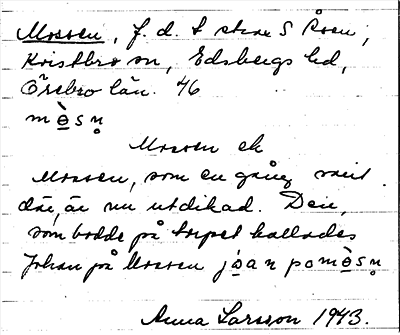 Mossen, f. d. t stene S Åsen,
Kvistbro sn, Edsbergs hd,
Örebro län. 46
mòsn̥
Mossen ek
Mossen, som en gång varit
där, är nu utdikad. Den,
som bodde på torpet kallades
Johan på Mossen jòan pomòsn̥
Anna Larsson 1943.